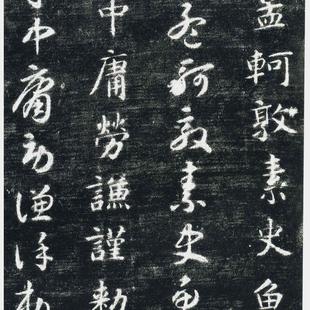 孟軻敦素史魚
孟軻敦素史魚
中庸勞謙謹勑
中庸勞謙謹勑